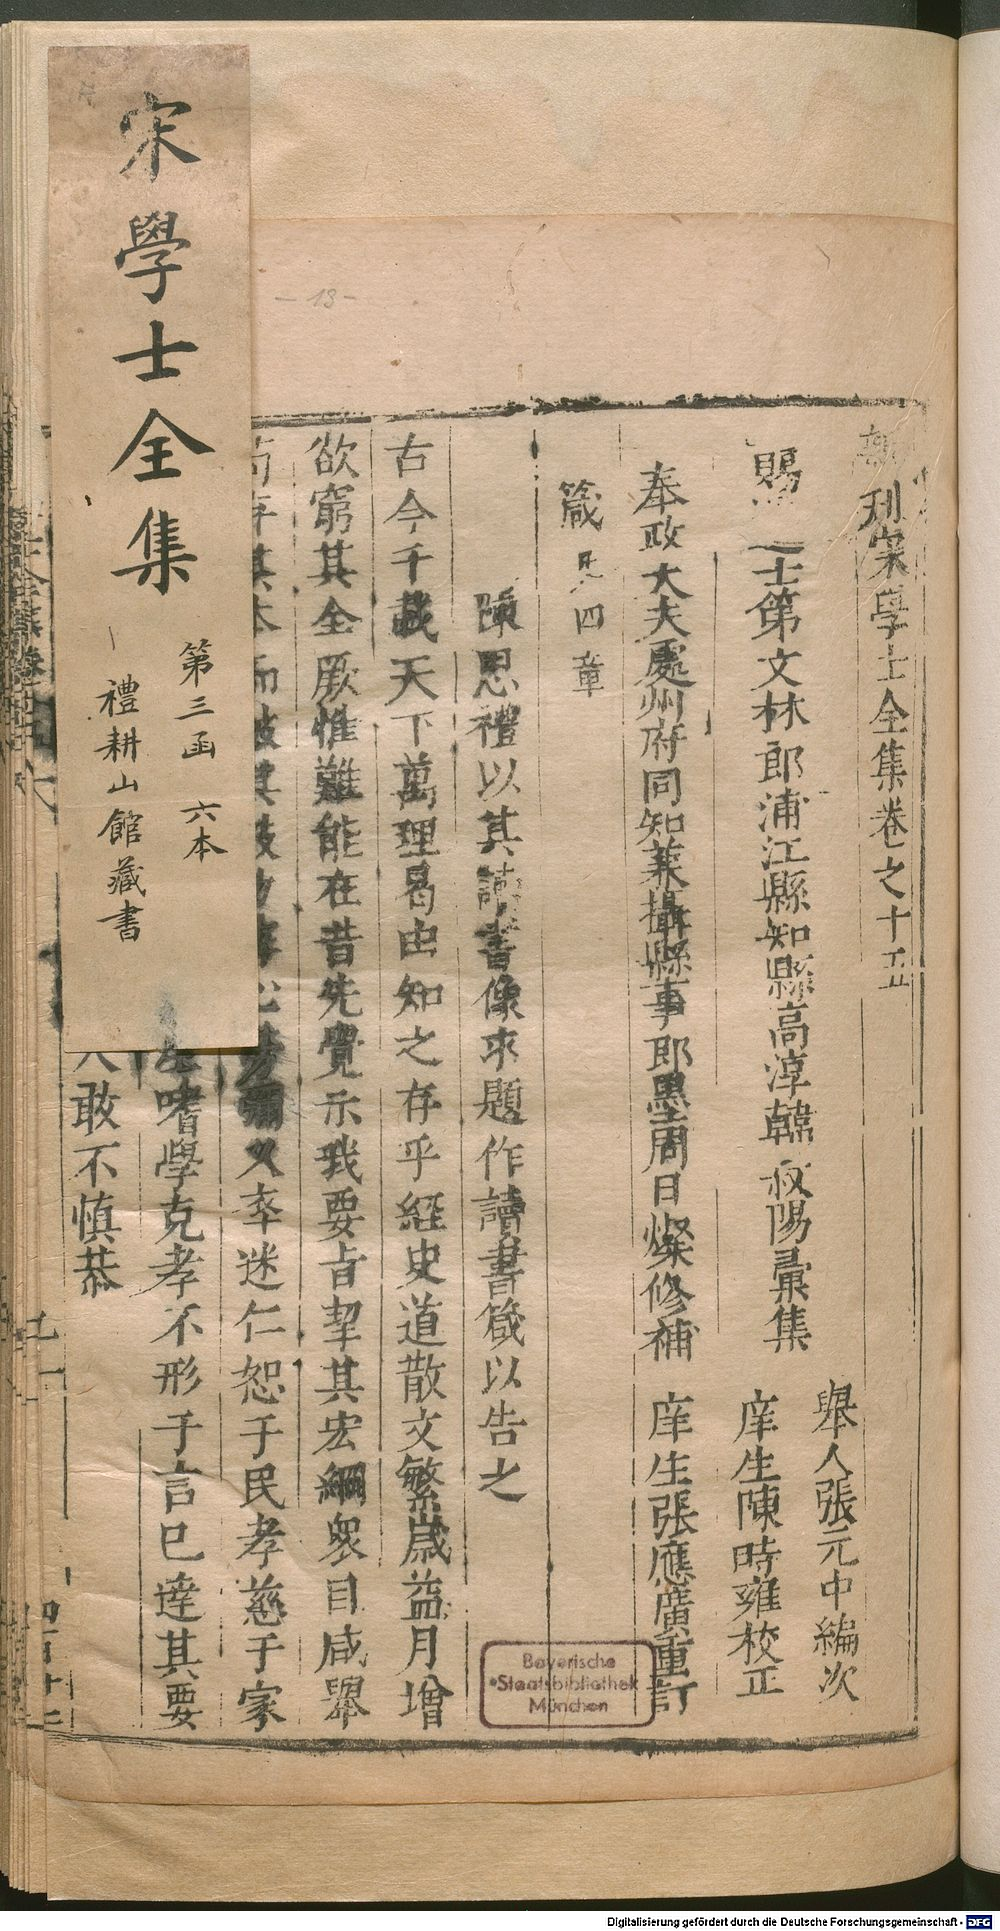 宋學士全集
第三函 六本
禮耕山館藏書
刋宋學士全集卷之十五
賜 士第文林郎浦江縣知縣高淳韓叔陽彚集
舉人張元中編次
庠生陳時雍校正
奉政大夫處州府同知兼攝縣事即墨周日燦修補 庠生張應廣重訂
箴 四章
陳思禮以其讀書像來題作讀書箴以告之
古今千載天下萬理曷由知之存乎經史道散文繁歲益月增
欲窮其全厥惟難能在昔先覺示我要旨挈其宏綱衆目咸舉
其本而 其 久率迷仁恕于民孝慈于家
嗜學克孝不形于言已達其要
人敢不慎恭
- 13 -
Bayerische
Staatsbibliothek
München
Digitalisierung gefördert durch die Deutsche Forschungsgemeinschaft - DFG